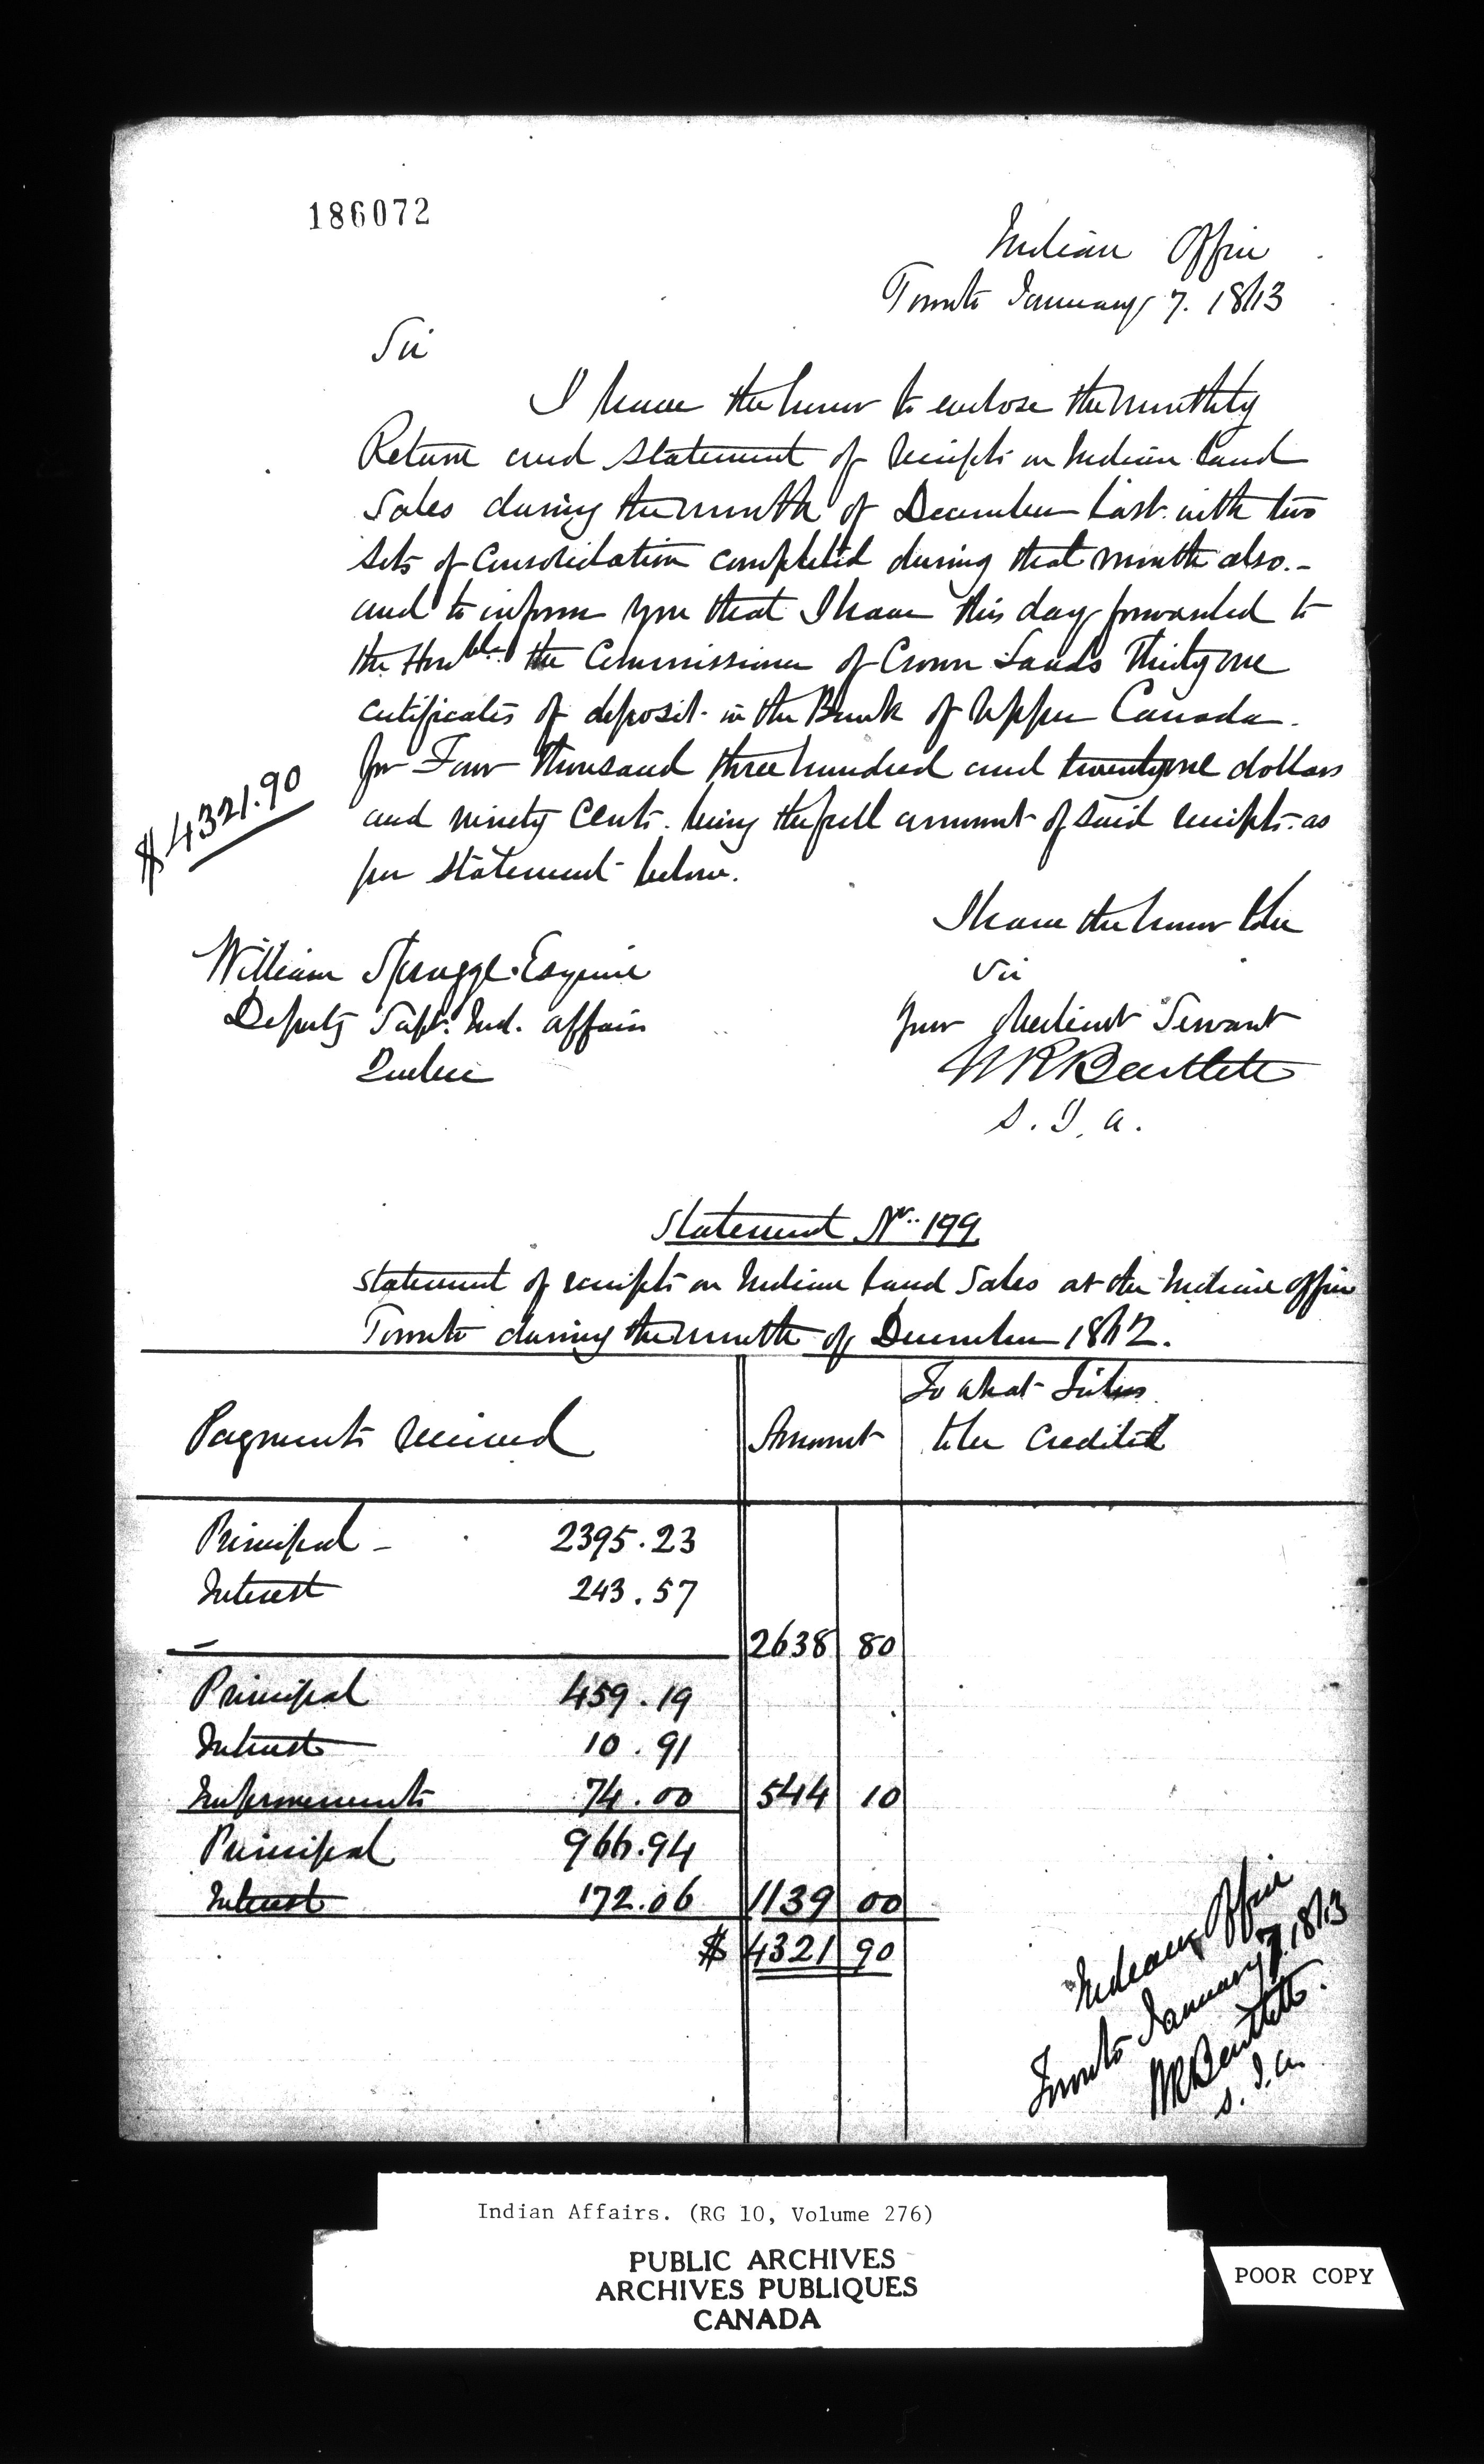 186072
Indian Office
Toronto January 7. 1863
Sir
I have the honor to enclose the monthly
Return and statement of receipts on Indian Land
Sales during the month of December last with two
sets of Consolidation completed during that month also.-
and to inform you that I have this day forwarded to
the Honble the Commissioner of Crown Lands Thirty one
certificates of deposit in the Bank of Upper Canada.
for Four thousand three hundred and twenty one dollars
$4321.90
and ninety cents. being the full amount of said receipts. as
per statement below.
I have the honor to be
Sir
Your obedient Servant
WRBartlett
S. I. A.
William Spragge. Esquire
Deputy Supt. Ind. Affairs
Quebec
Statement No. 199
Statement of receipts on Indian Land Sales at the Indian Office
Toronto during the month of December 1862.
Payments received Amount To what
to be Credited
Principal - 2395.23
Interest 243.57
2638 80
Principal 459.19
Interest 10.91
Improvements 74.00 544 10
Principal 966.94
Interest 172.06 1139 00
$ 4321 90
Indian Office
Toronto January 7. 1863
WRBartlett.
S. I. A.
Indian Affairs. (RG 10, Volume 276)
PUBLIC ARCHIVES
ARCHIVES PUBLIQUES
CANADA
POOR COPY